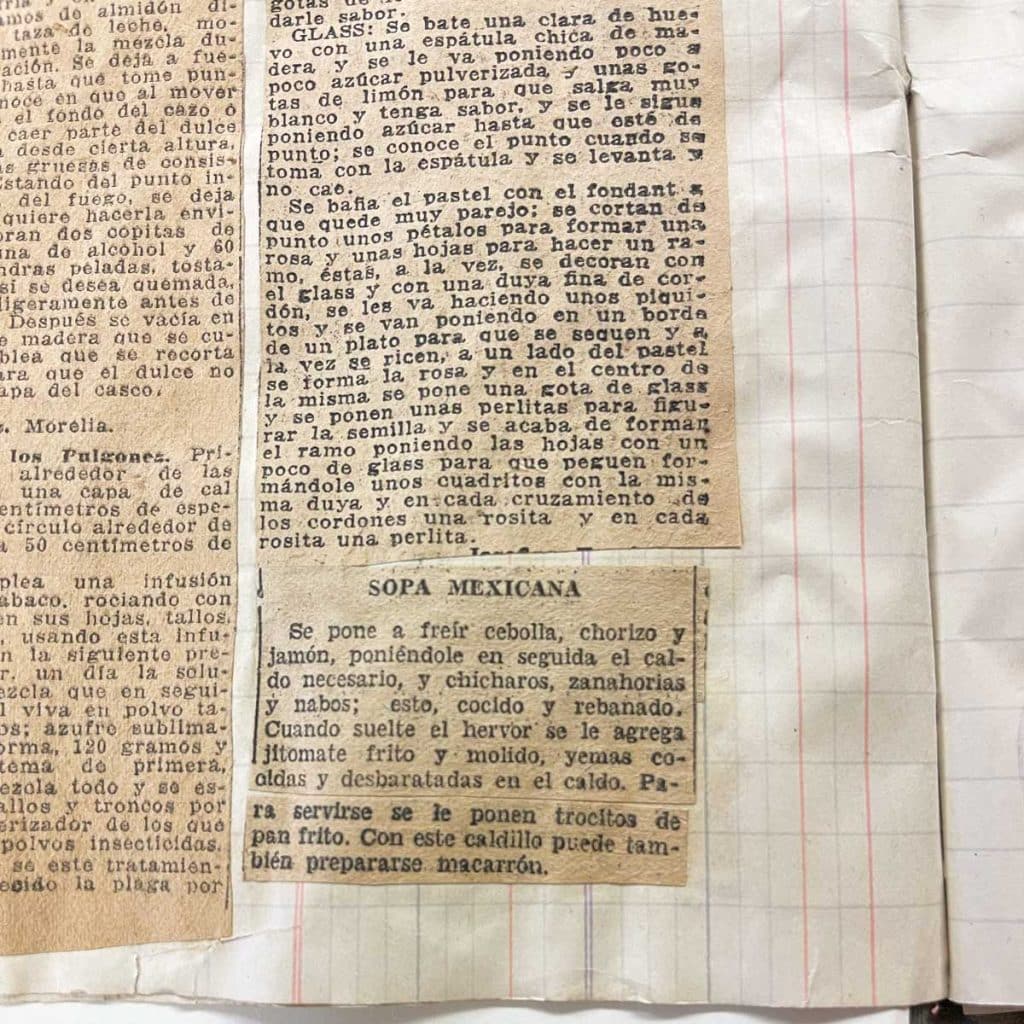 amos de almidón di-
taza de leche, mo-
mente la mezcla du-
ación. Se deja a fue-
hasta que tome pun-
noce en que al mover
el fondo del cazo o
caer parte del dulce
desde cierta altura,
as gruesas de consis-
Estando del punto in-
del fuego, se deja
quiere hacerla envi-
oran dos copitas de
una de alcohol y 60
ndras peladas, tosta-
si se desea quemada,
ligeramente antes de
Después se vacía en
e madera que se cu-
blea que se recorta
ara que el dulce no
apa del casco.
Morelia.
los Pulgones. Pri-
alrededor de las
una capa de cal
entímetros de espe-
círculo alrededor de
a 50 centímetros de
plea una infusión
abaco, rociando con
en sus hojas, tallos,
usando esta infu-
n la siguiente pre-
r. un día la solu-
ezcla que en segui-
l viva en polvo ta-
os; azufre sublima-
orma, 120 gramos y
tema de primera,
ezcla todo y se es-
allos y troncos por
erizador de los que
polvos insecticidas.
se este tratamien-
ecido la plaga por
gotas de
darle sabor.
GLASS: Se bate una clara de hue-
vo con una espátula chica de ma-
dera y se le va poniendo poco a
poco azúcar pulverizada y unas go-
tas de limón para que salga muy
blanco y tenga sabor, y se le sigue
poniendo azúcar hasta que esté de
punto; se conoce el punto cuando se
toma con la espátula y se levanta y
no cae.
Se baña el pastel con el fondant a
que quede muy parejo; se cortan de
punto unos pétalos para formar una
rosa y unas hojas para hacer un ra-
mo, éstas, a la vez, se decoran con
el glass y con una duya fina de cor-
dón, se les va haciendo unos piqui-
tos y se van poniendo en un borde
de un plato para que se sequen y a
la vez se ricen, a un lado del pastel
se forma la rosa y en el centro de
la misma se pone una gota de glass
y se ponen unas perlitas para figu-
rar la semilla y se acaba de formar
el ramo poniendo las hojas con un
poco de glass para que peguen for-
mándole unos cuadritos con la mis-
ma duya y en cada cruzamiento de
los cordones una rosita y en cada
rosita una perlita.
SOPA MEXICANA
Se pone a freír cebolla, chorizo y
jamón, poniéndole en seguida el cal-
do necesario, y chicharos, zanahorias
y nabos; esto, cocido y rebanado.
Cuando suelte el hervor se le agrega
jitomate frito y molido, yemas co-
cidas y desbaratadas en el caldo. Pa-
ra servirse se le ponen trocitos de
pan frito. Con este caldillo puede tam-
bién prepararse macarrón.